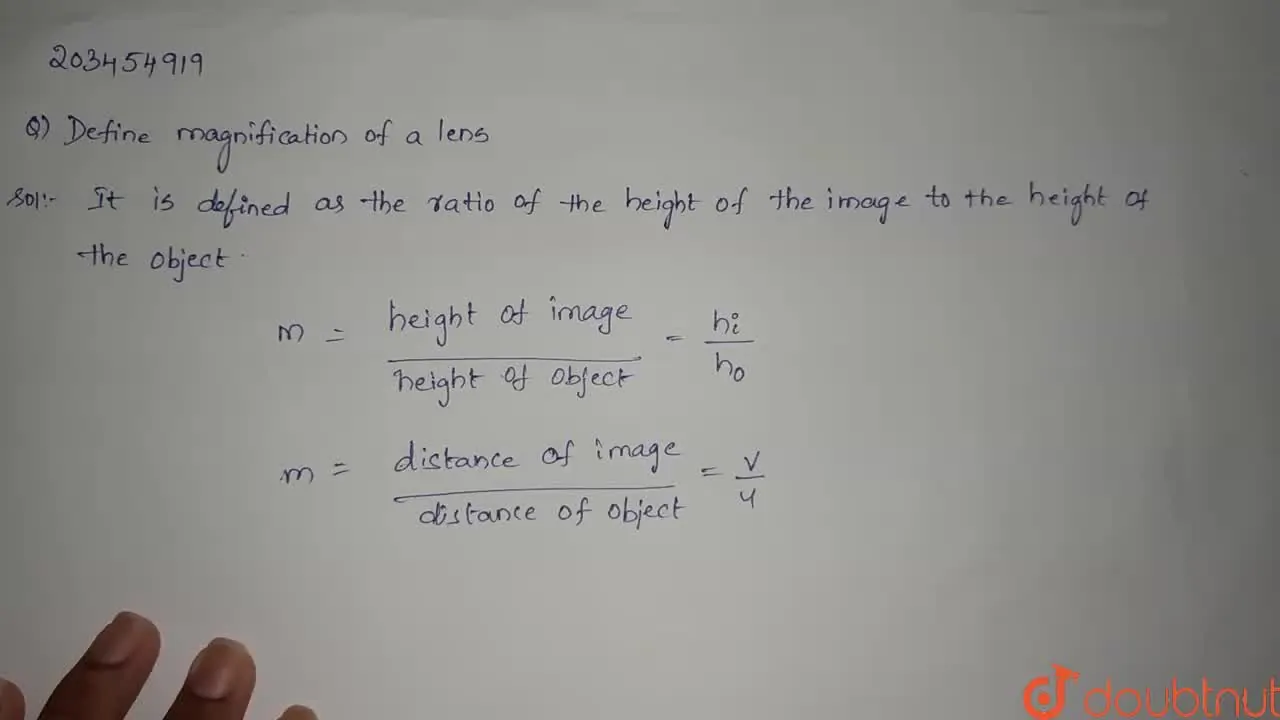 203454919
Q) Define magnification of a lens
Sol:- It is defined as the ratio of the height of the image to the height of
the object.
m = height of image / height of object = hi / ho
m = distance of image / distance of object = v / u
doubtnut